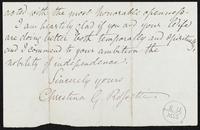 noted with the most honorable openness.
I am heartily glad if you and your Wife
are doing better both temporally and spiritually,
and I commend to your ambition the
nobility of independence.
Sincerely yours
Christina G. Rossetti